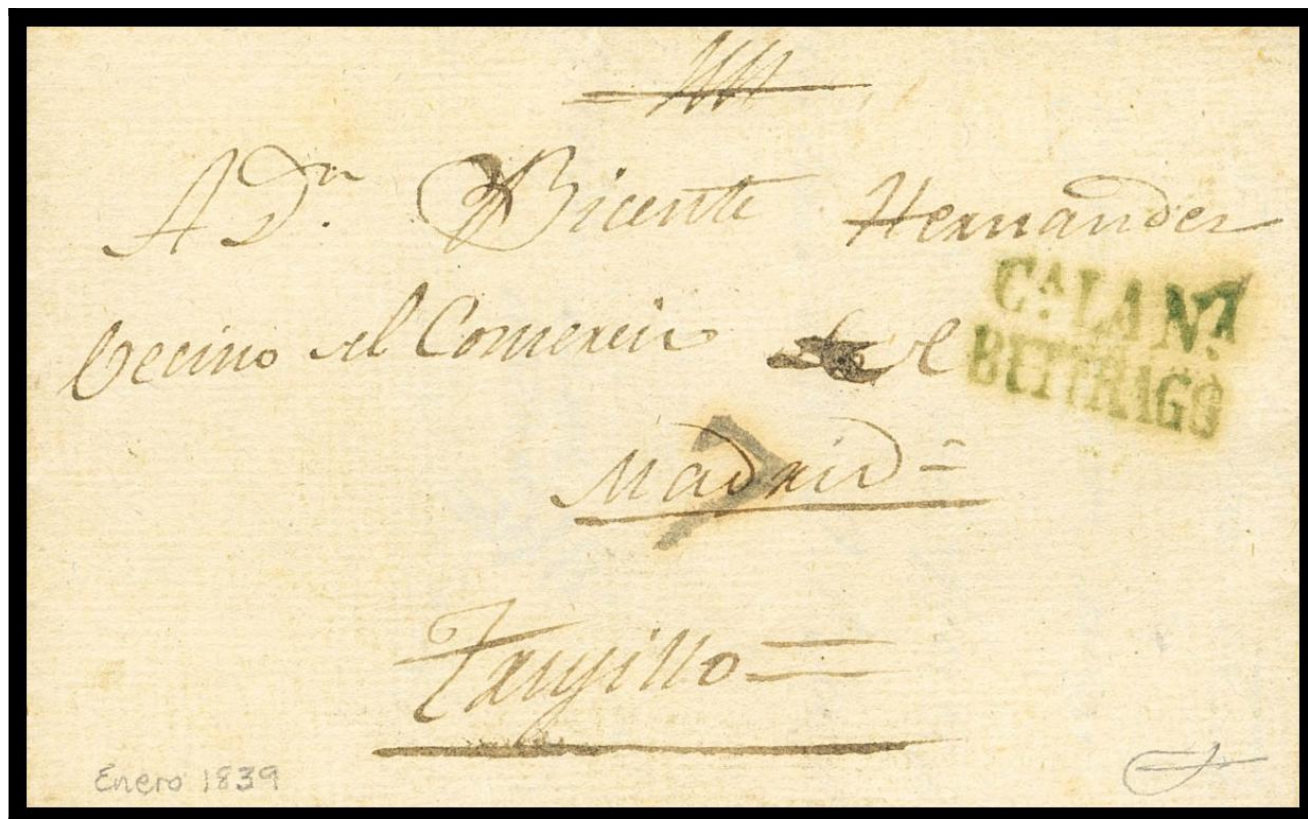 A Dn. Bicente Hernandez
Vecino del Comercio de
CA. LA Na.
BUITRAGO
Madrid =
7
Enero 1839